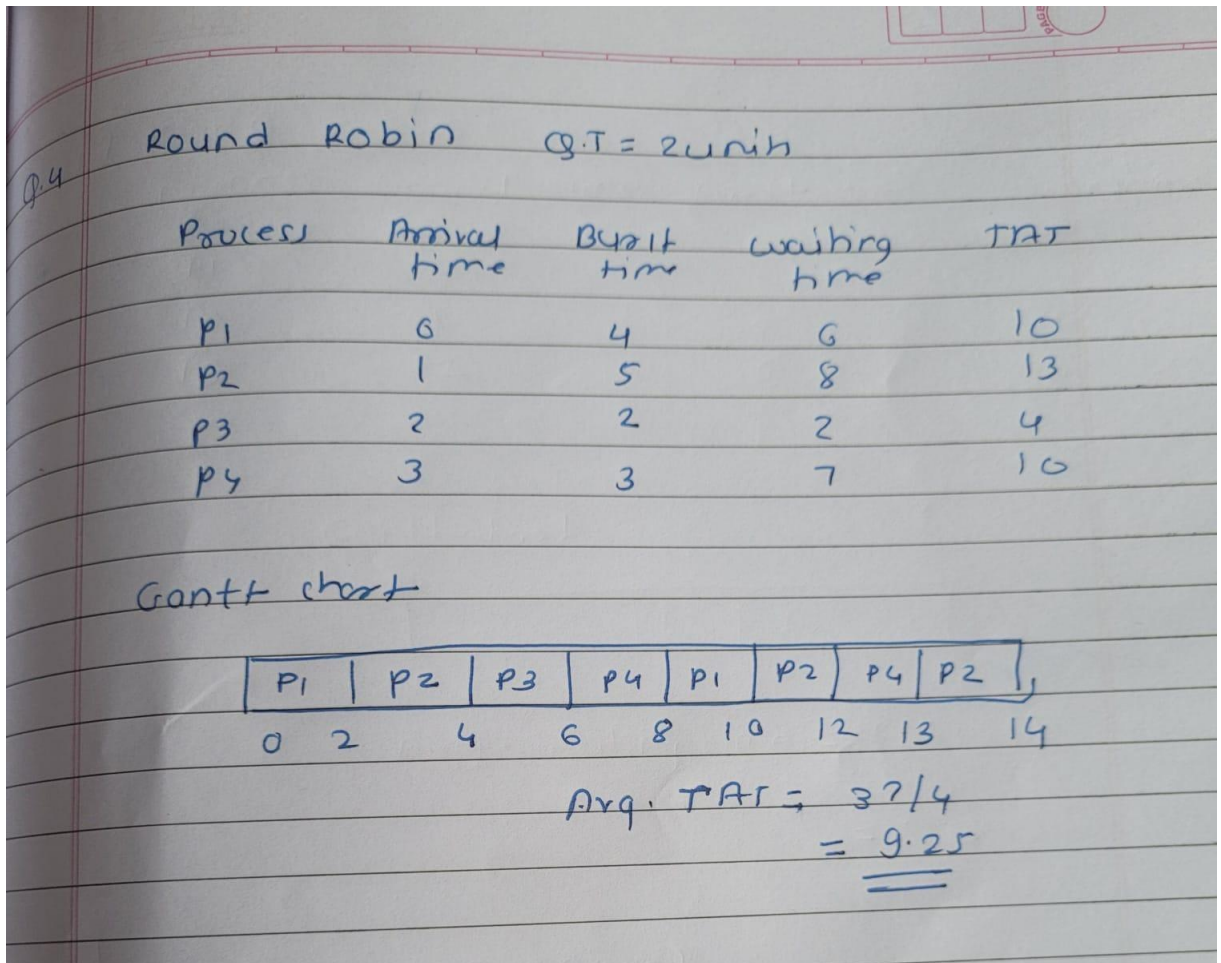 PAGE
Round Robin Q.T = 2 units
Q.4
Process Arrival Burst waiting TAT
time time time
P1 0 4 6 10
P2 1 5 8 13
P3 2 2 2 4
P4 3 3 7 10
Gantt chart
P1 P2 P3 P4 P1 P2 P4 P2
0 2 4 6 8 10 12 13 14
Avg. TAT = 37/4
= 9.25